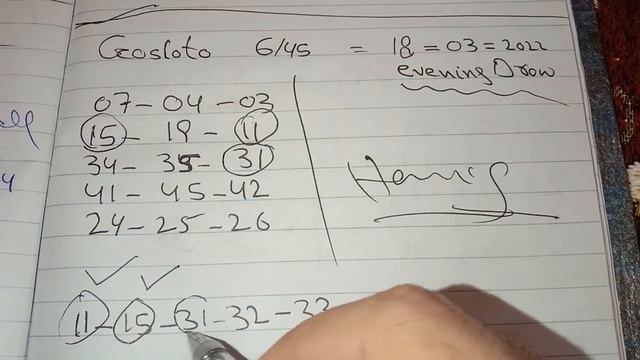 Gosloto 6/45 = 18=03=2022
evening Drow
07-04-03
15-19-11
34-35-31
41-45-42
24-25-26
11-15-31-32-33